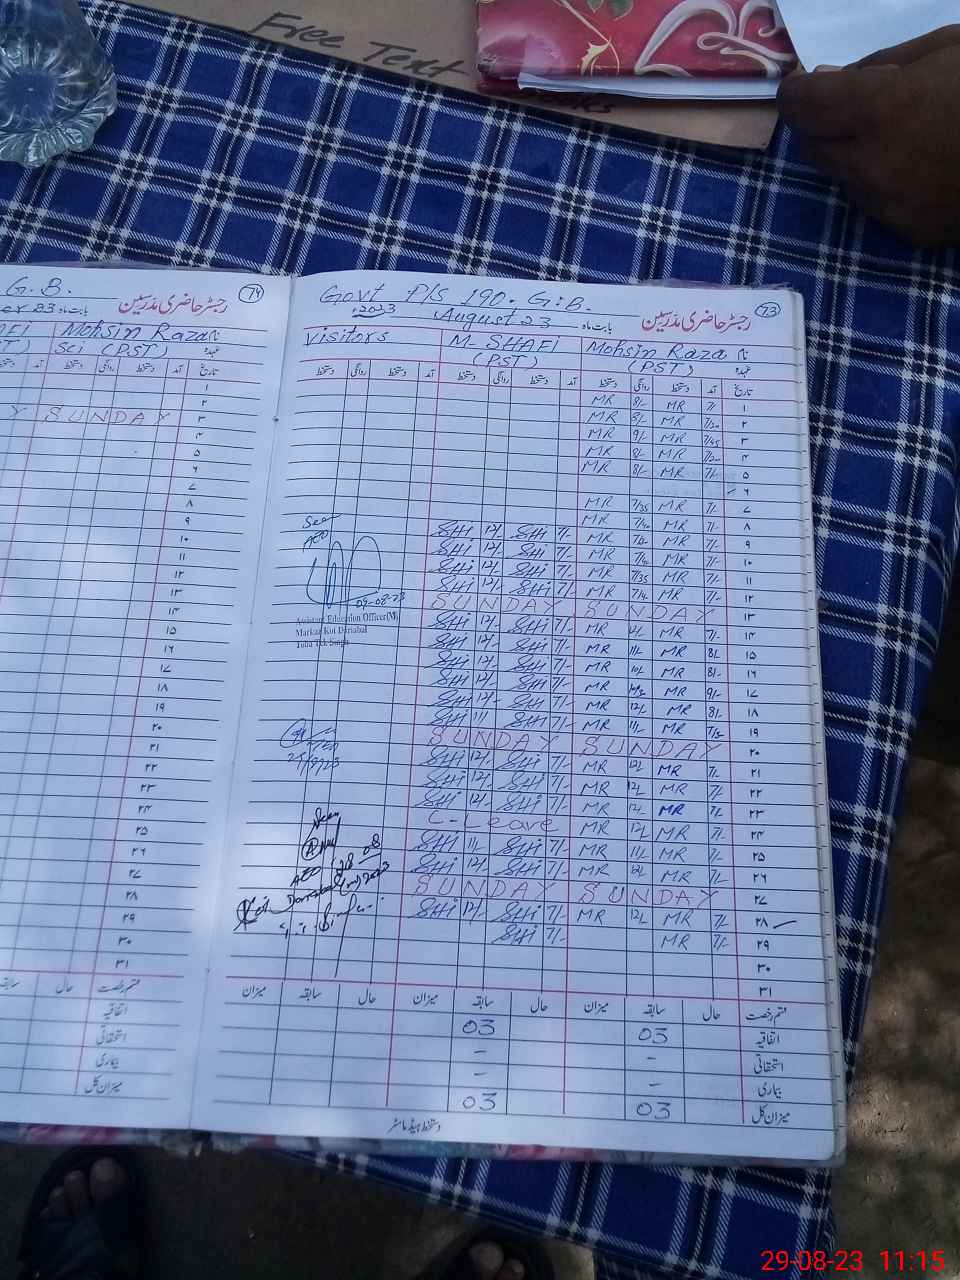 Free Text
Books
G. B.
74
رجسٹر حاضری مدرسین
بابت ماہ
Mohsin Raza
Sci (PST)
عہدہ
تاریخ
SUNDAY
Govt P/S 190. G.B.
73
2023
August 23
بابت ماہ
رجسٹر حاضری مدرسین
Visitors
M- SHAFI
Mohsin Raza
(PST)
(PST)
عہدہ
دستخط روانگی دستخط آمد دستخط روانگی دستخط آمد دستخط روانگی دستخط آمد تاریخ
MR 8/- MR 7/- ۱
MR 8/- MR 7/20 ۲
MR 9/- MR 7/45 ۳
MR 8/- MR ۴
MR 8/- MR 7/- ۵
۶
MR 7/35 MR 7/- ۷
Seen MR 7/40 MR 7/- ۸
AEO SHi 12/- SHi 7/- MR MR 7/- ۹
SHi 12/- SHi 7/- MR MR 7/- ۱۰
SHi 12/- SHi 7/- MR 7/35 MR 7/- ۱۱
SHi 12/- SHi 7/- MR MR 7/- ۱۲
09-08-23
SUNDAY SUNDAY ۱۳
Assistant Education Officer(M)
Markaz Kot Dariabal
Toba Tek Singh
SHi 12/- SHi 7/- MR 12/- MR 7/- ۱۴
SHi 12/- SHi 7/- MR 11/- MR 8/- ۱۵
SHi 12/- SHi 7/- MR MR 8/- ۱۶
SHi 12/- SHi 7/- MR MR 9/- ۱۷
SHi 12/- SHi 7/- MR 12/- MR 8/- ۱۸
SHi 11/ SHi 7/- MR 11/- MR ۱۹
SUNDAY SUNDAY ۲۰
SHi 12/- SHi 7/- MR 12/- MR 7/- ۲۱
SHi 12/- SHi 7/- MR 12/- MR 7/- ۲۲
SHi 12/- SHi 7/- MR 12/- MR 7/- ۲۳
C-Leave MR 12/- MR 7/- ۲۴
SHi 11/- SHi 7/- MR 11/- MR 7/- ۲۵
SHi 12/- SHi 7/- MR 12/- MR 7/- ۲۶
SUNDAY SUNDAY ۲۷
SHi 12/- SHi 7/- MR 12/- MR 7/- ۲۸
SHi 7/- MR 7/- ۲۹
۳۰
۳۱
Seen
AEO
28-08
2023
میزان سابقہ حال میزان سابقہ حال میزان سابقہ حال قسم رخصت
03 03 اتفاقیہ
- - استحقاقی
- - بیماری
03 03 میزان کل
دستخط ہیڈ ماسٹر
حال قسم رخصت
اتفاقیہ
استحقاقی
بیماری
میزان کل
29-08-23 11:15